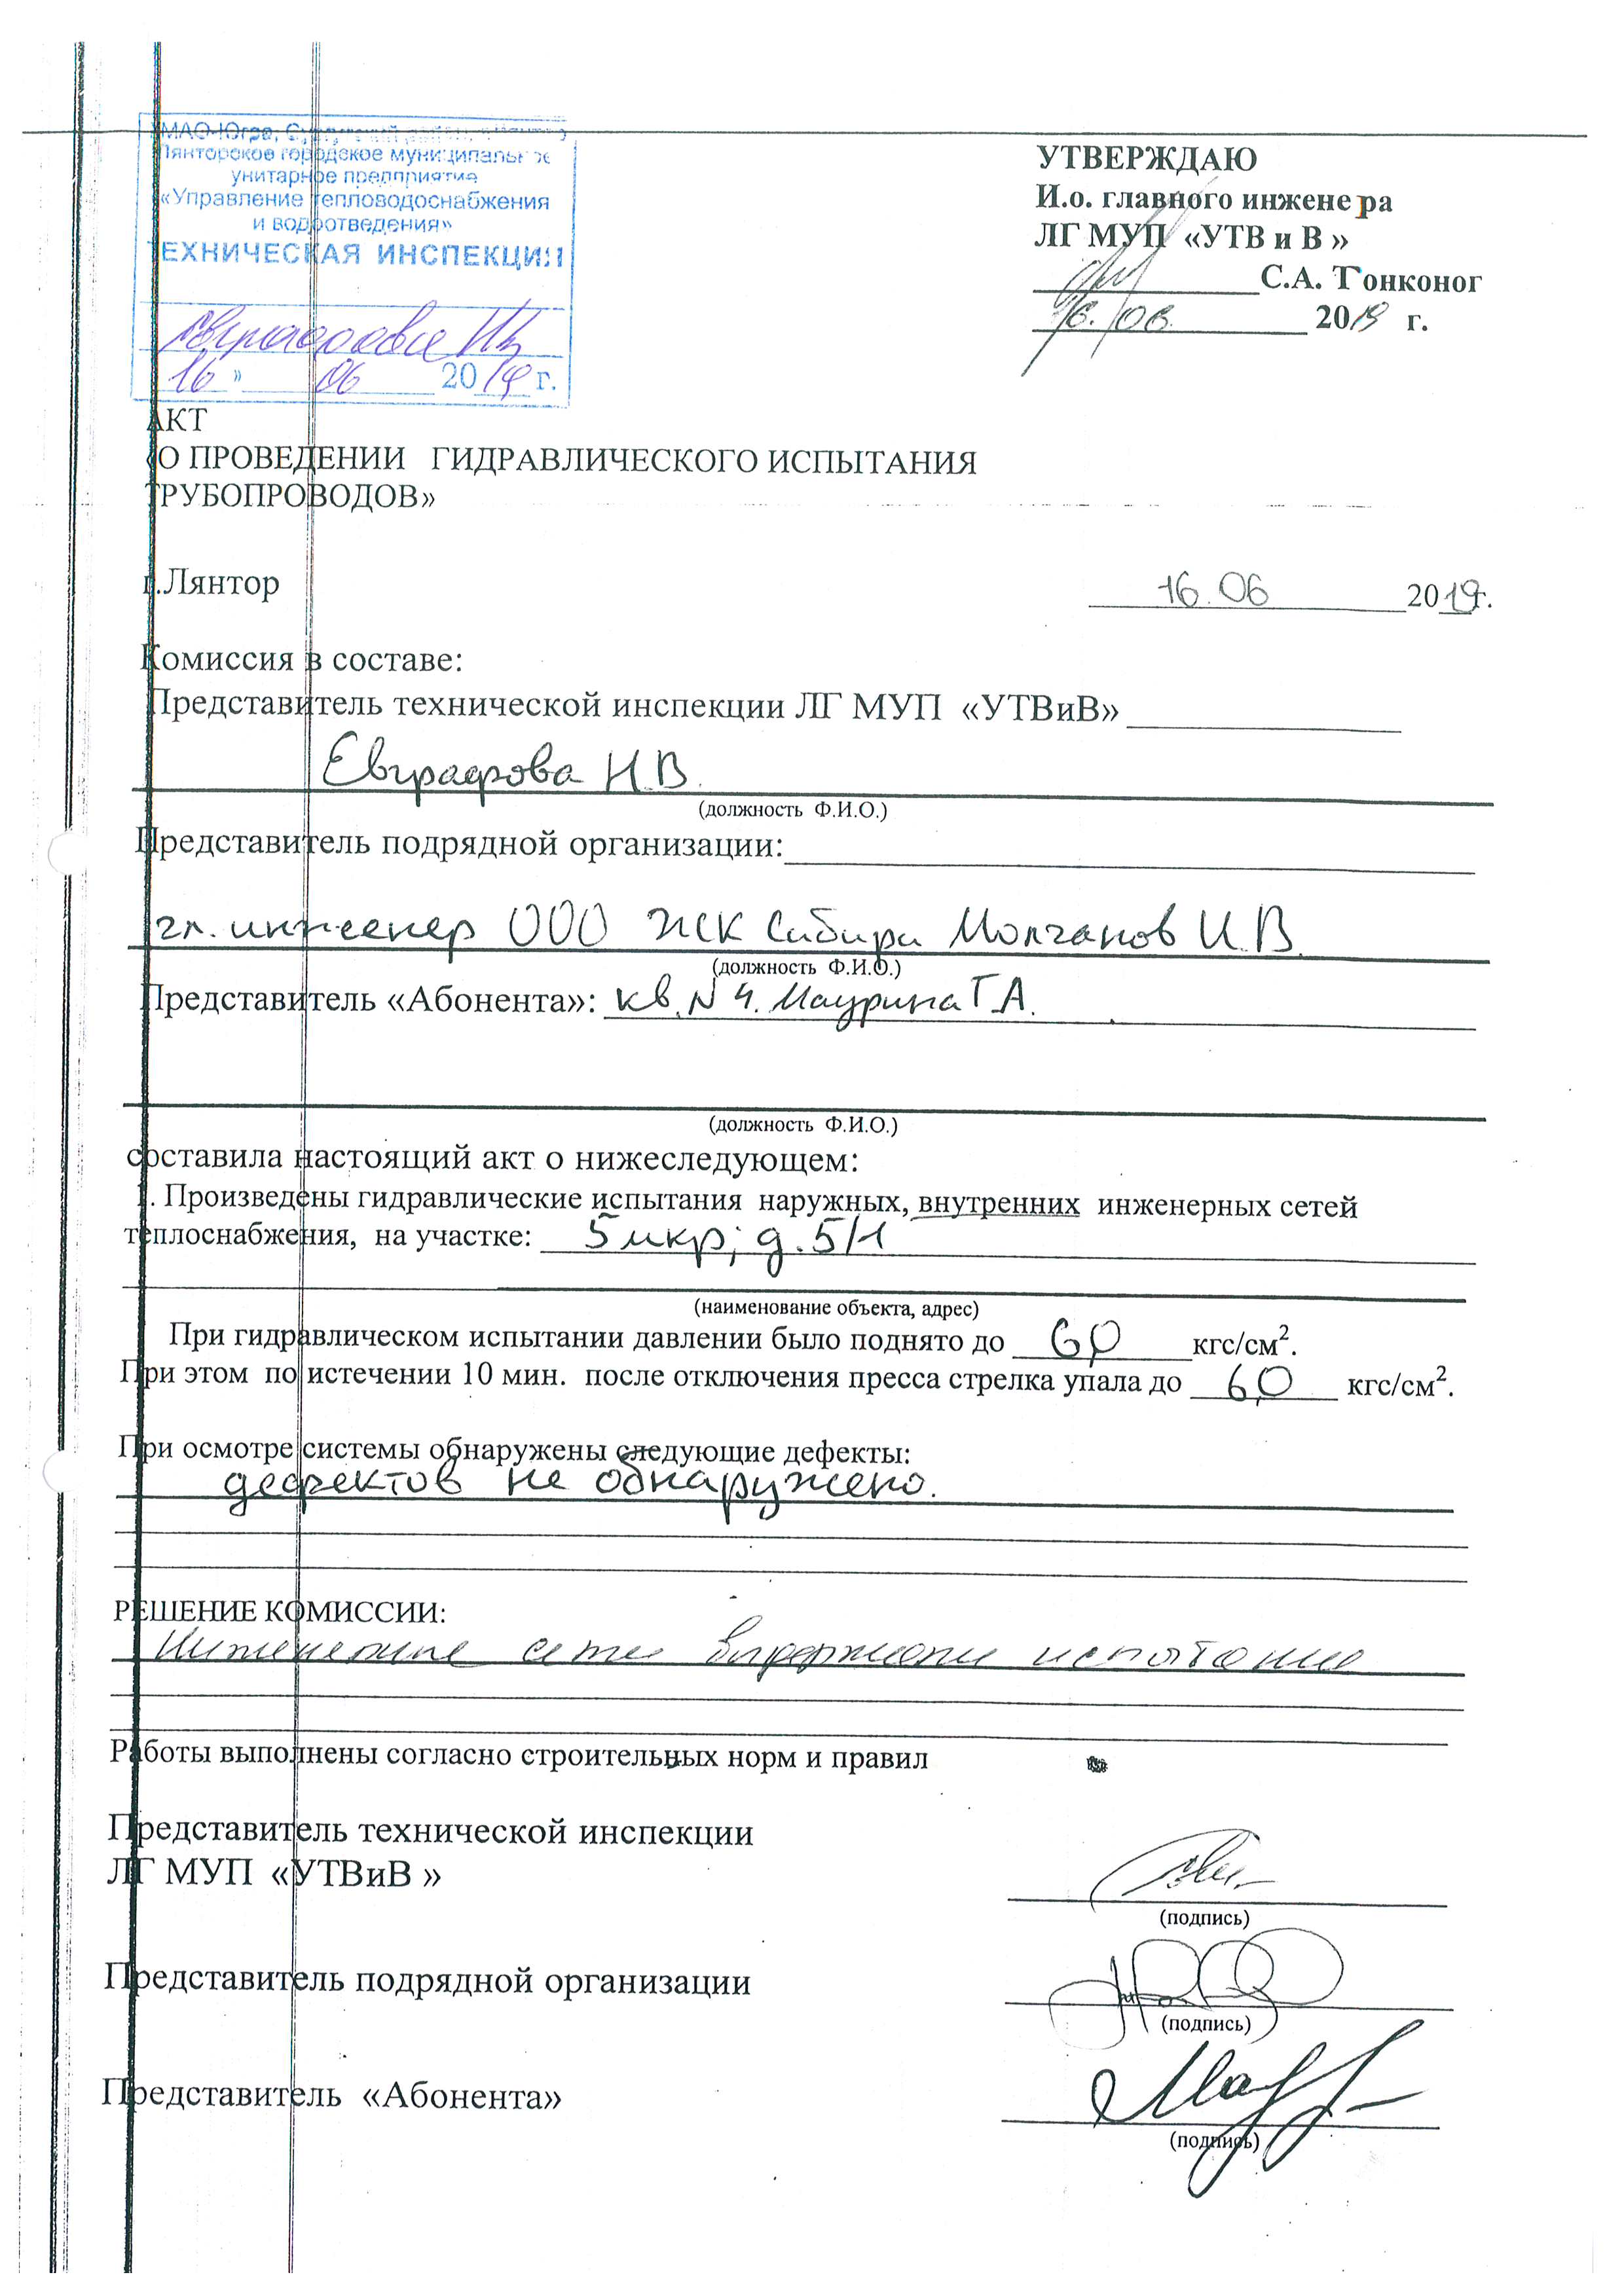 ХМАО-Югра, Сургутский район, г.Лянтор
Лянторское городское муниципальное
унитарное предприятие
«Управление тепловодоснабжения
и водоотведения»
ТЕХНИЧЕСКАЯ ИНСПЕКЦИЯ
Евграфова Н.В.
16 » 06 2019 г.
УТВЕРЖДАЮ
И.о. главного инженера
ЛГ МУП «УТВ и В »
С.А. Тонконог
16.06. 2019 г.
АКТ
«О ПРОВЕДЕНИИ ГИДРАВЛИЧЕСКОГО ИСПЫТАНИЯ
ТРУБОПРОВОДОВ»
г.Лянтор 16.06 2019г.
Комиссия в составе:
Представитель технической инспекции ЛГ МУП «УТВиВ»
Евграфова Н.В.
(должность Ф.И.О.)
Представитель подрядной организации:
гл. инженер ООО ЖСК Сибири Молчанов И.В.
(должность Ф.И.О.)
Представитель «Абонента»: кв. N 4. Маурина Г.А.
(должность Ф.И.О.)
составила настоящий акт о нижеследующем:
1. Произведены гидравлические испытания наружных, внутренних инженерных сетей
теплоснабжения, на участке: 5 мкр; д. 5/1
(наименование объекта, адрес)
При гидравлическом испытании давлении было поднято до 6,0 кгс/см².
При этом по истечении 10 мин. после отключения пресса стрелка упала до 6,0 кгс/см².
При осмотре системы обнаружены следующие дефекты:
дефектов не обнаружено.
РЕШЕНИЕ КОМИССИИ:
Инженерные сети выдержали испытание
Работы выполнены согласно строительных норм и правил
Представитель технической инспекции
ЛГ МУП «УТВиВ »
(подпись)
Представитель подрядной организации
(подпись)
Представитель «Абонента»
(подпись)